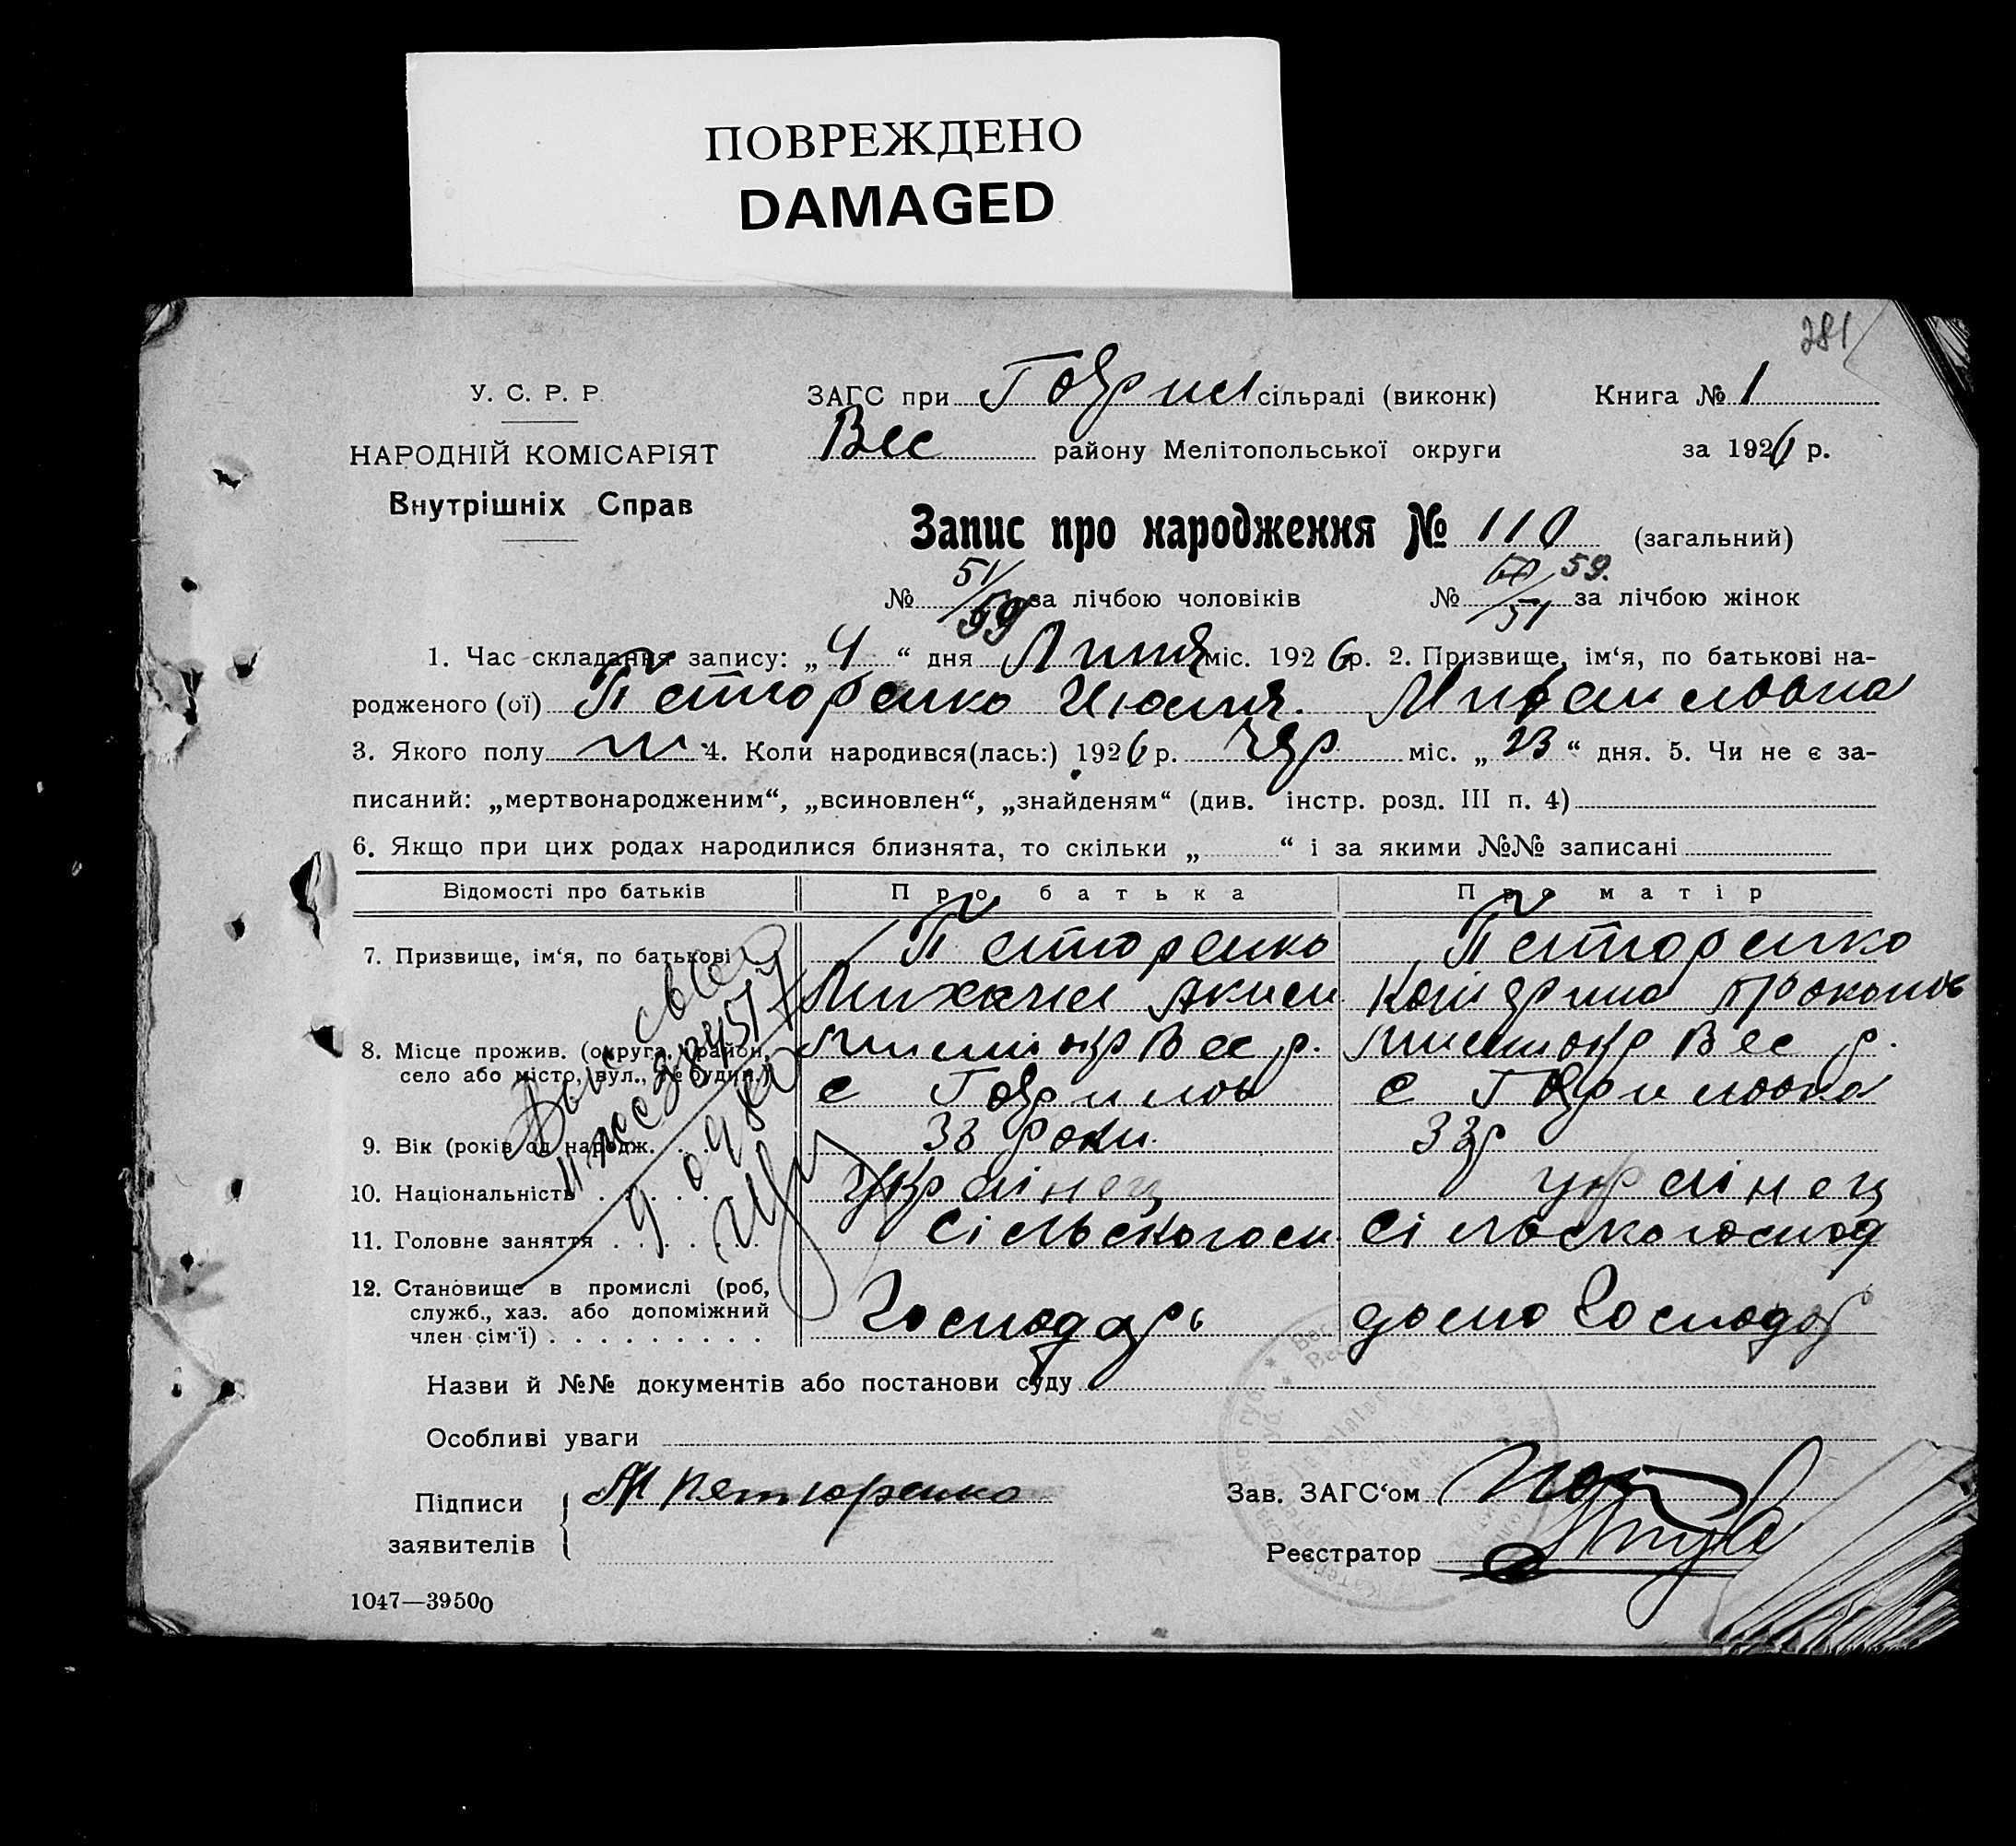 ПОВРЕЖДЕНО
DAMAGED
281
У. С. Р. Р.
НАРОДНІЙ КОМІСАРІЯТ
Внутрішніх Справ
ЗАГС при Гаврил сільраді (виконк)
Вес району Мелітопольської округи
Книга № 1
за 1926 р.
Запис про народження № 110 (загальний)
№ 51/59 за лічбою чоловіків № 59. 51 за лічбою жінок
1. Час складання запису: „4“ дня Липня міс. 1926 р. 2. Призвище, ім‘я, по батькові на-
родженого (ої) Петюренко Михайловна
3. Якого полу ж 4. Коли народився(лась:) 1926 р. Чер міс. „23“ дня. 5. Чи не є за-
писаний: „мертвонародженим“, „всиновлен“, „знайденям“ (див. інстр. розд. III п. 4)
6. Якщо при цих родах народилися близнята, то скільки „ “ і за якими №№ записані
Відомості про батьків Про батька Про матір
7. Призвище, ім‘я, по батькові Петюренко Петюренко
Михаил Аким Катерина Проконов
8. Місце прожив. (округа, район, Мелит окр Вес р. Мелит окр Вес р.
село або місто, вул., № будин.) с Гаврилов с Гавриловка
9. Вік (років од народж. 33 роки. 33 р
10. Національність Украінец украінец
11. Головне заняття Сільськогосп. Сільскогоспод
12. Становище в промислі (роб,
служб., хаз. або допоміжний
член сім‘ї) Господарь допо Господар
Назви й №№ документів або постанови суду
Особливі уваги
Підписи
заявителів М Петюренко
Зав. ЗАГС‘ом
Реєстратор
1047—39500